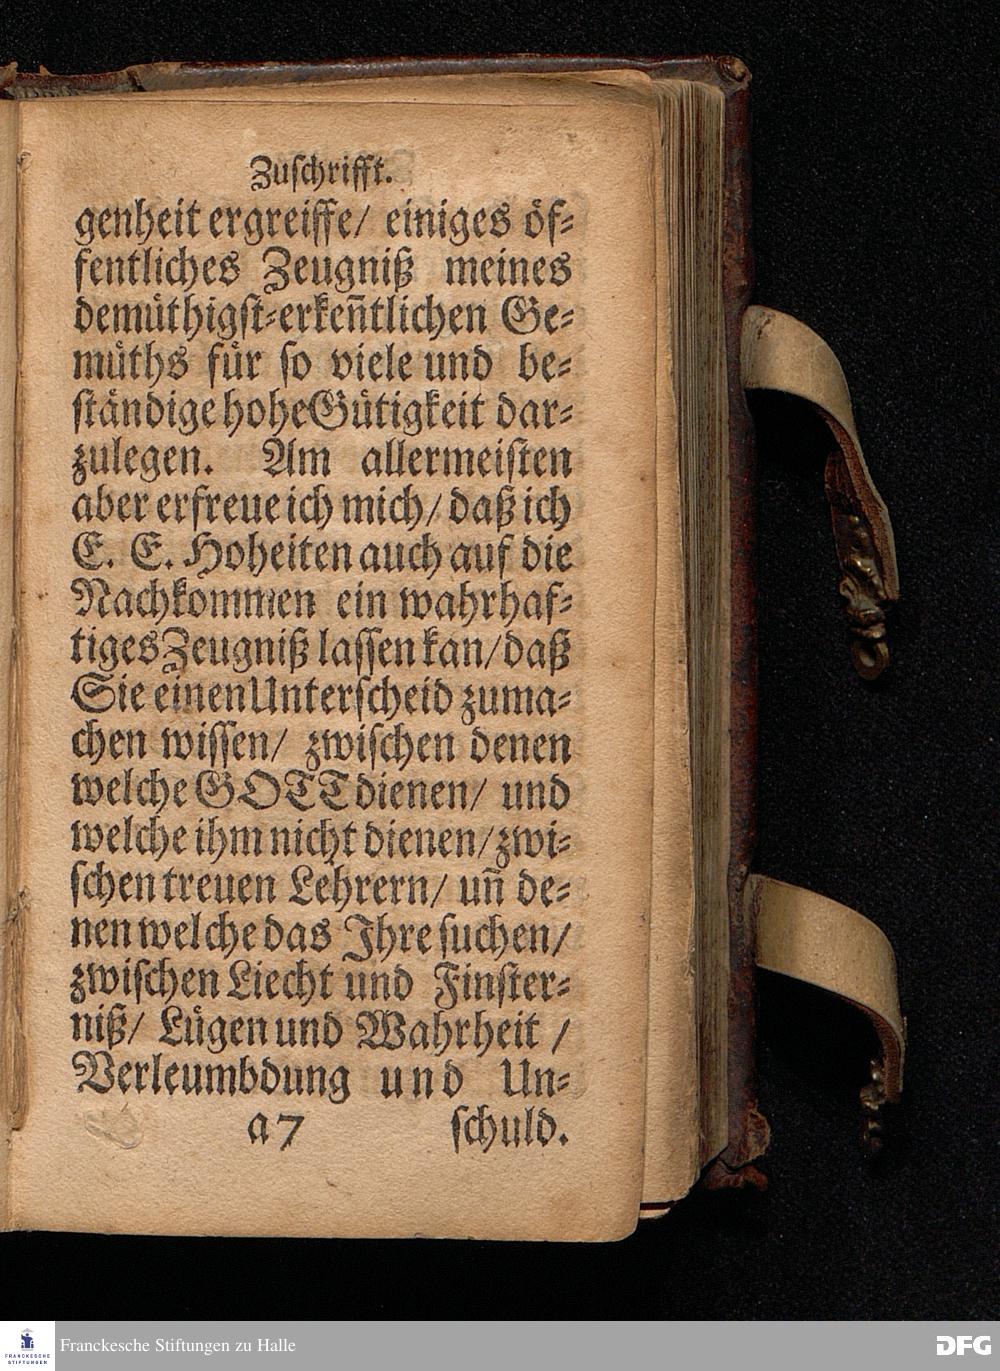 Zuſchrifft.
genheit ergreiffe/ einiges öf⸗
fentliches Zeugniß meines
demüthigſt⸗erkeñtlichen Ge⸗
müths für ſo viele und be⸗
ſtändige hohe Gütigkeit dar⸗
zulegen. Am allermeiſten
aber erfreue ich mich/ daß ich
E. E. Hoheiten auch auf die
Nachkommen ein wahrhaf⸗
tiges Zeugniß laſſen kan/ daß
Sie einen Unterſcheid zuma⸗
chen wiſſen/ zwiſchen denen
welche GOTT dienen/ und
welche ihm nicht dienen/ zwi⸗
ſchen treuen Lehrern/ uñ de⸗
nen welche das Ihre ſuchen/
zwiſchen Liecht und Finſter⸗
niß/ Lügen und Wahrheit /
Verleumbdung und Un⸗
a7 ſchuld.
FRANCKESCHE STIFTUNGEN Franckesche Stiftungen zu Halle DFG